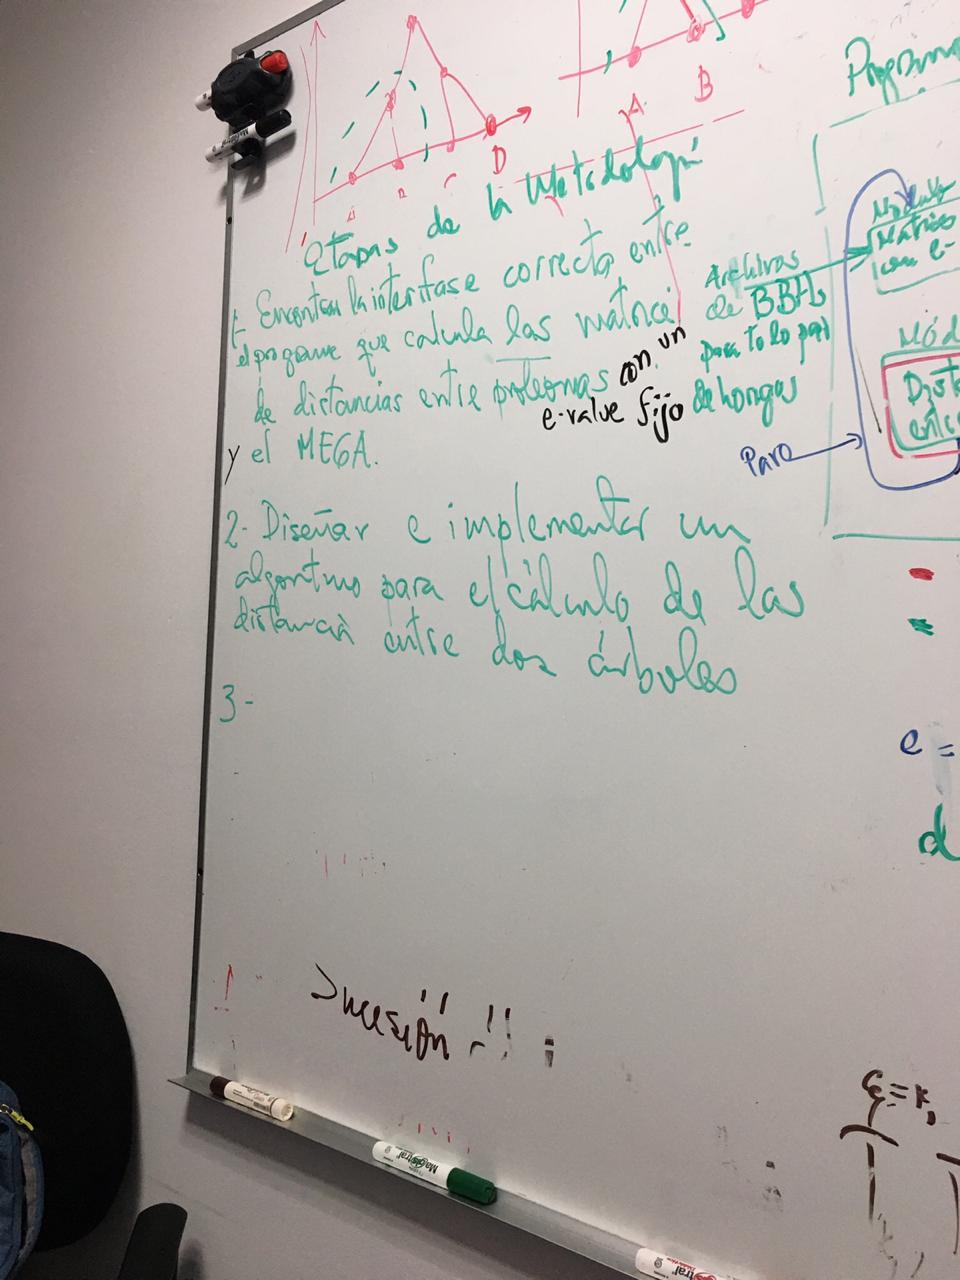 A
B
C
D
A
B
Etapas de la Metodologí
1- Encontrar la interfase correcta entre
el programa que calcula las matrice
de distancias entre proteomas con un
e-value fijo
y el MEGA.
Archivos
de BBH,
para to lo par
de hongos
2- Diseñar e implementar un
algoritmo para el cálculo de las
distancia entre dos árboles
3-
Programa
Módulo
Matrices
con e-
Mód
Dist
entre
Para
e =
d
Sucesión